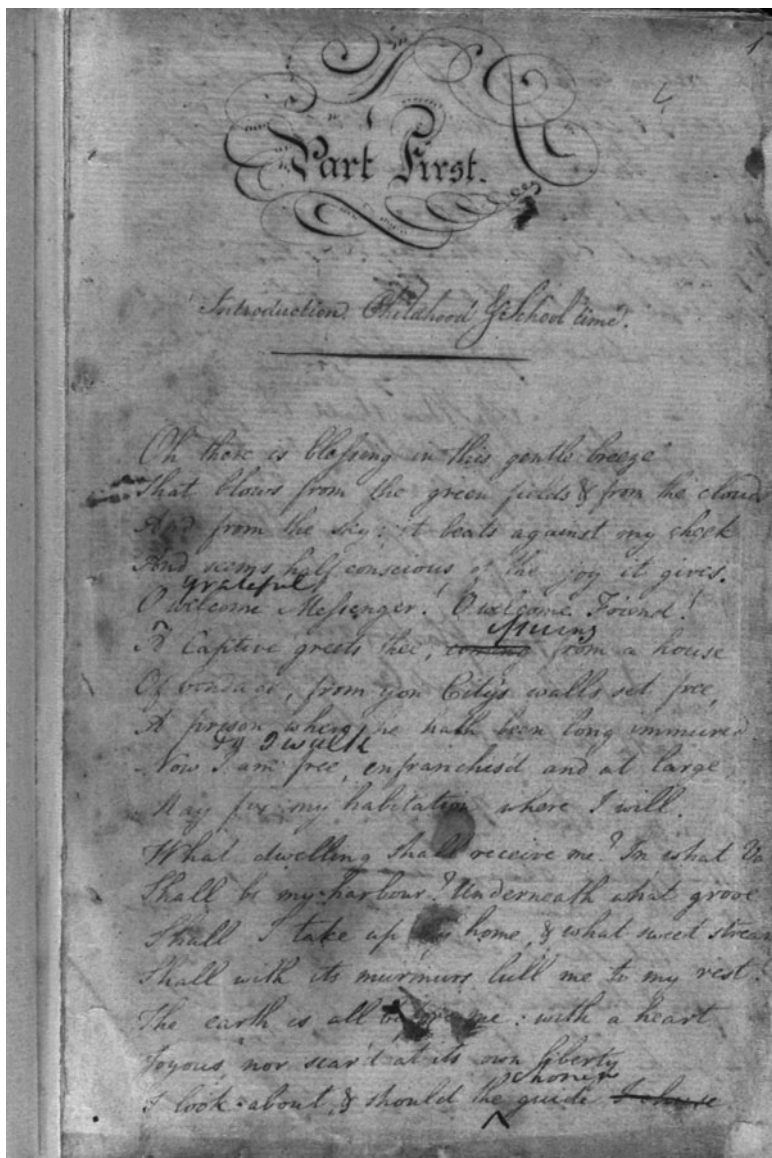 1
4
Part First.
Introduction. Childhood & School time.
Oh there is blessing in this gentle breeze
That blows from the green fields & from the clouds
And from the sky: it beats against my cheek
And seems half conscious of the joy it gives.
grateful
O welcome Messenger! O welcome Friend!
A Captive greets thee, coming from a house
Of bondage, from yon City's walls set free,
A prison where he hath been long immured
Now I am free, enfranchis'd and at large,
May fix my habitation where I will.
What dwelling shall receive me? In what Va
Shall be my harbour? Underneath what grove
Shall I take up my home, & what sweet stream
Shall with its murmurs lull me to my rest?
The earth is all before me: with a heart
Joyous, nor scar'd at its own liberty
chosen
I look about, & should the guide I chuse